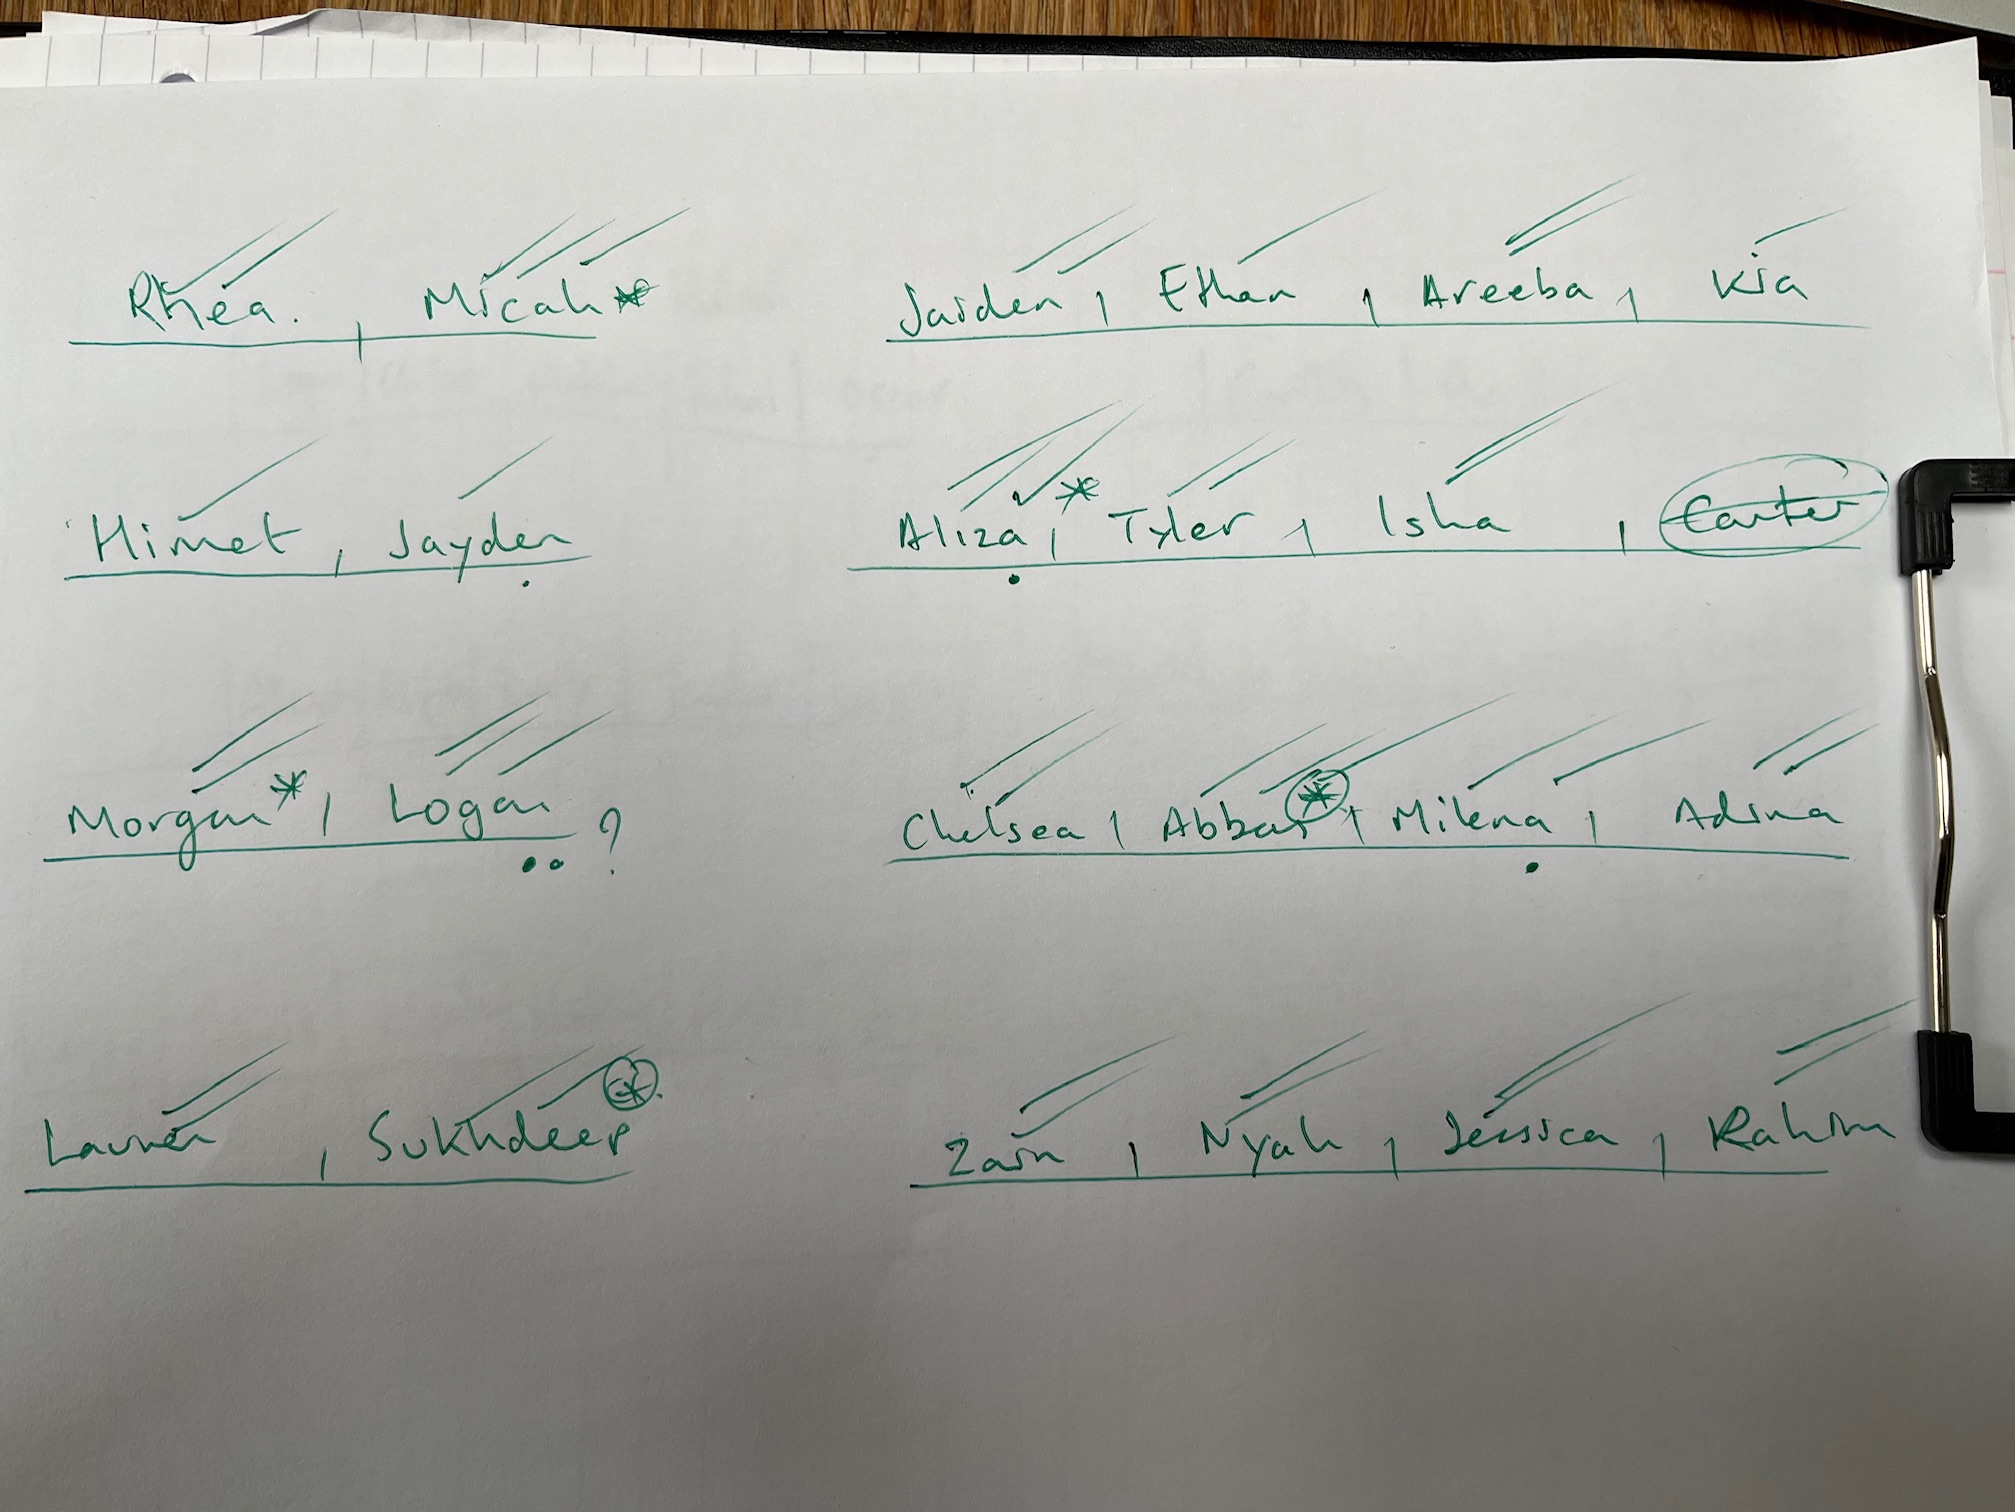 Rhea. , Micah* Jaiden , Ethan , Areeba , Kia
Himet , Jayden Aliza , * Tyler , Isha , Carter
Morgan* , Logan ? Chelsea , Abbas * , Milena , Adina
Lauren , Sukhdeep * Zain , Nyah , Jessica , Rahim